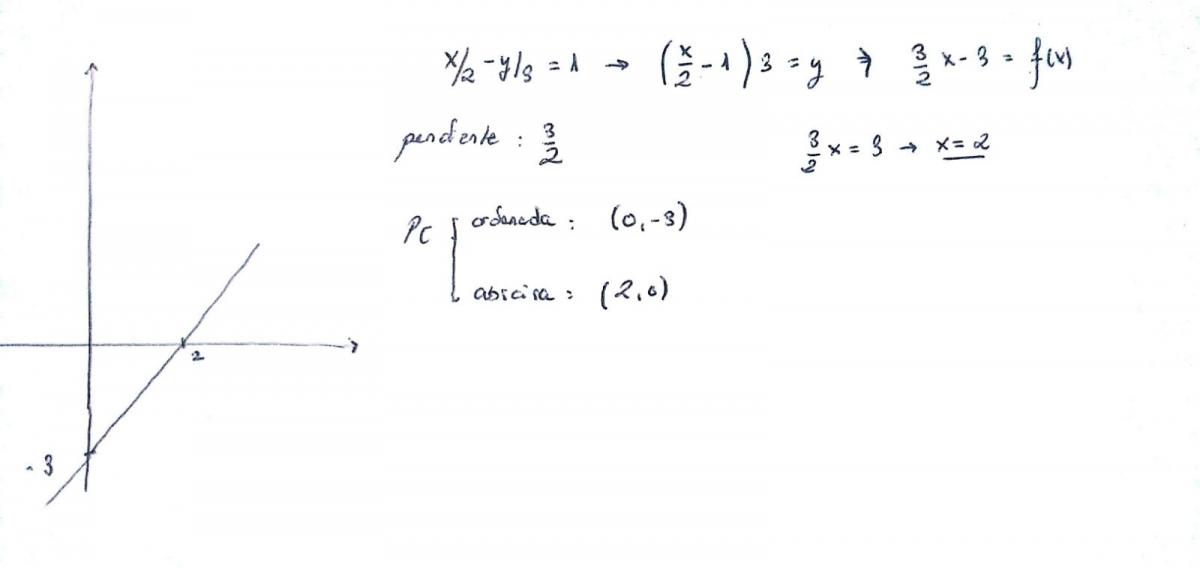 x/2 - y/3 = 1 → (x/2 - 1) 3 = y ⇒ 3/2 x - 3 = f(x)
pendente : 3/2
3/2 x = 3 → x = 2
PC { ordenada : (0, -3)
abscisa : (2, 0)
2
- 3